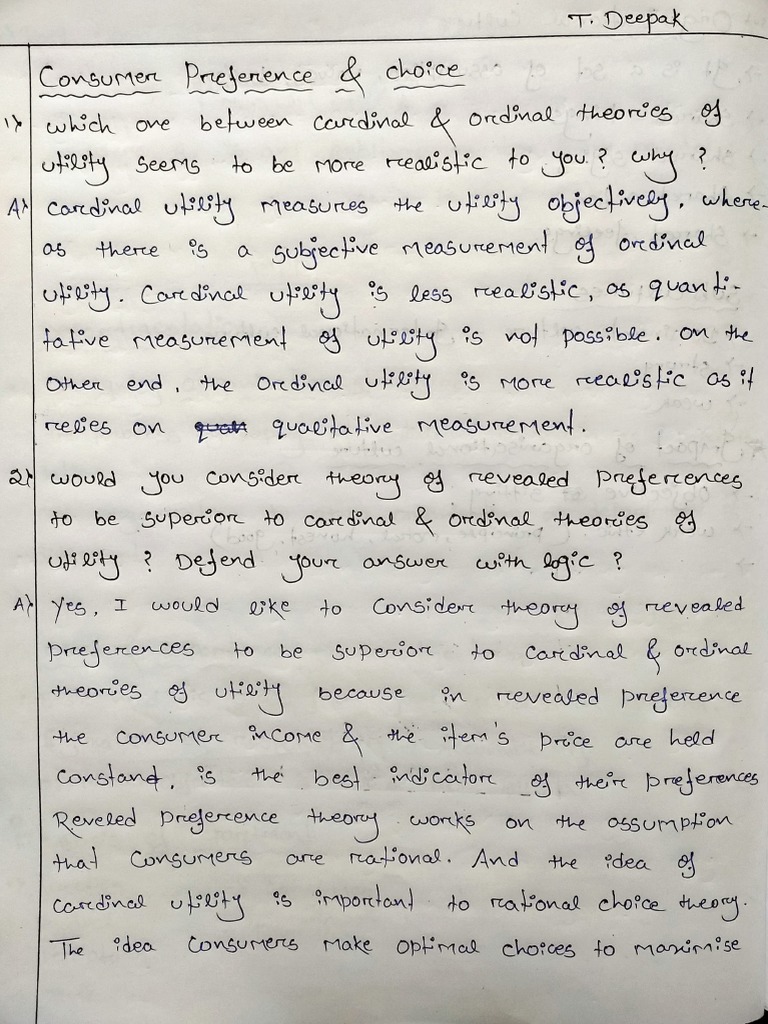 T. Deepak
Consumer Preference & choice
1) which one between cardinal & ordinal theories of
utility seems to be more realistic to you? why?
A) Cardinal utility measures the utility objectively, where-
as there is a subjective measurement of ordinal
utility. Cardinal utility is less realistic, as quanti-
tative measurement of utility is not possible. on the
other end, the ordinal utility is more realistic as it
relies on qualitative measurement.
2) would you consider theory of revealed preferences
to be superior to cardinal & ordinal theories of
utility? Defend your answer with logic?
A) Yes, I would like to consider theory of revealed
preferences to be superior to cardinal & ordinal
theories of utility because in revealed preference
the consumer income & the item's price are held
constant, is the best indicator of their preferences
Reveled preference theory works on the assumption
that consumers are rational. And the idea of
cardinal utility is important to rational choice theory.
The idea consumers make optimal choices to maximise